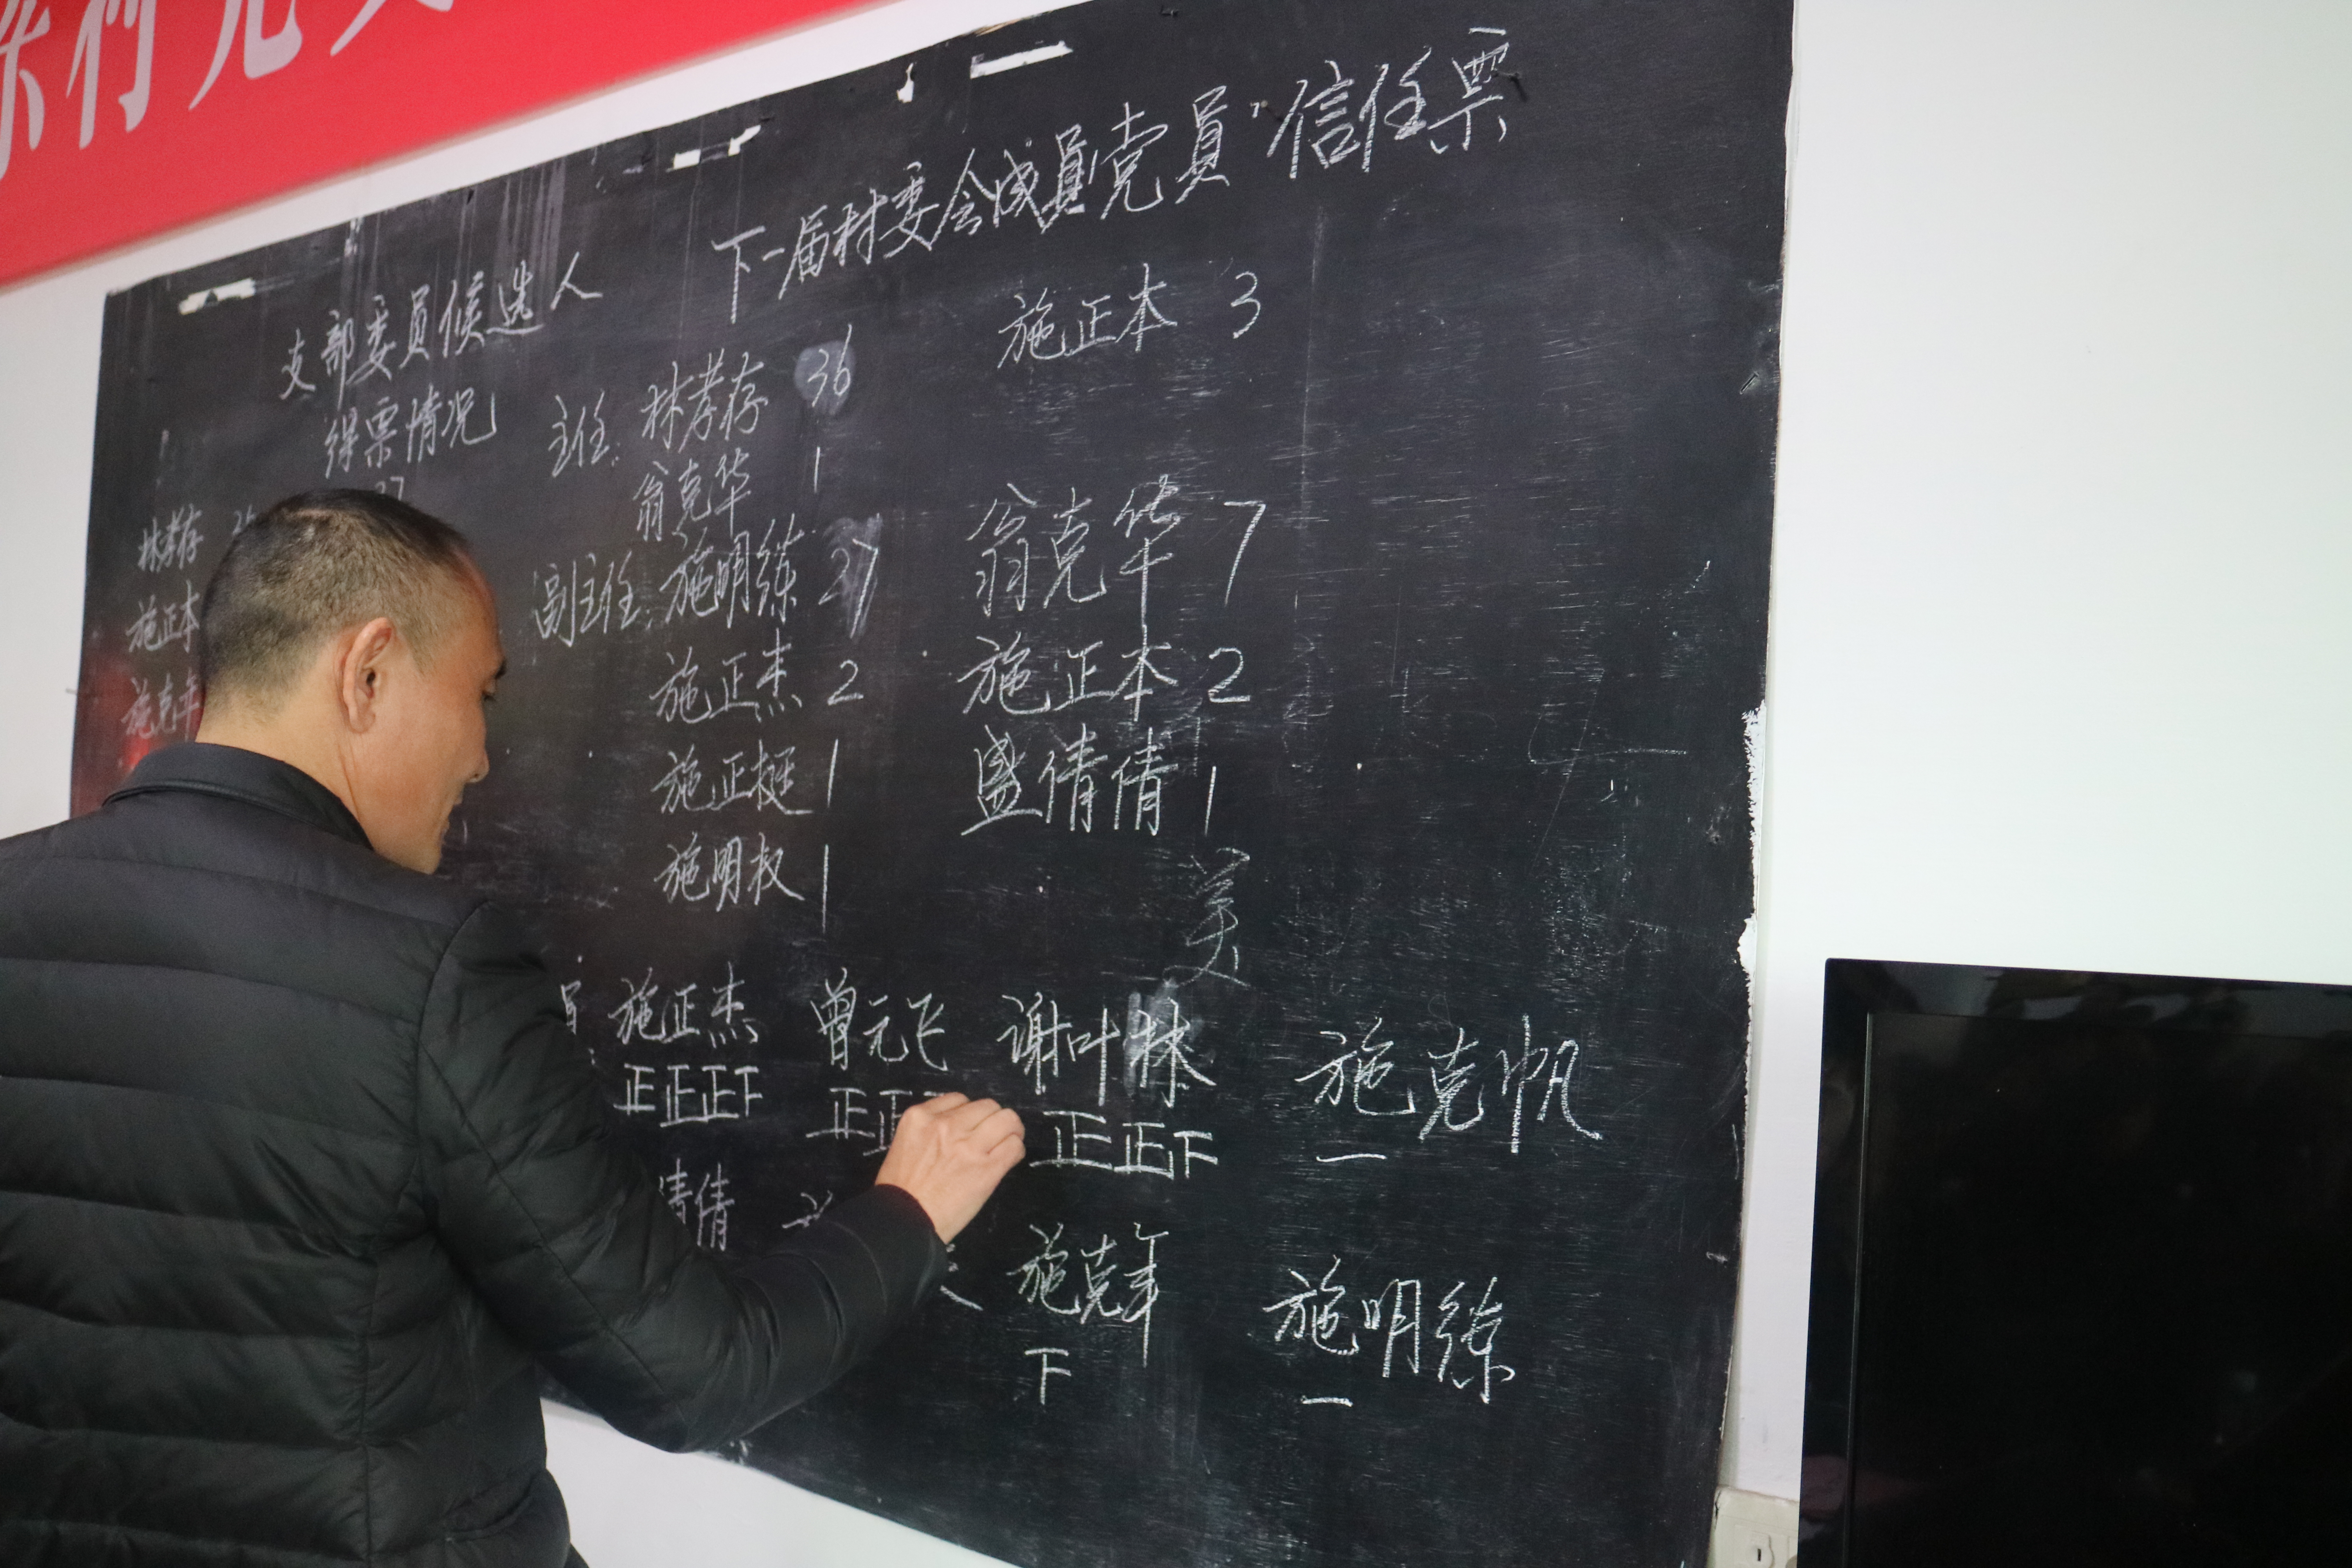 村党
下一届村委会成员"党员"信任票
支部委员候选人
得票情况
37
林孝存
施正本
施克年
主任: 林孝存 36 施正本 3
翁克华 1
副主任: 施明练 27 翁克华 7
施正杰 2 施正本 2
施正挺 1 盛倩倩 1
施明权 1
美
员 施正杰 曾元飞 谢叶林 施克帆
正正正下 正正 正正下 一
倩倩 施克年 施明练
下 一